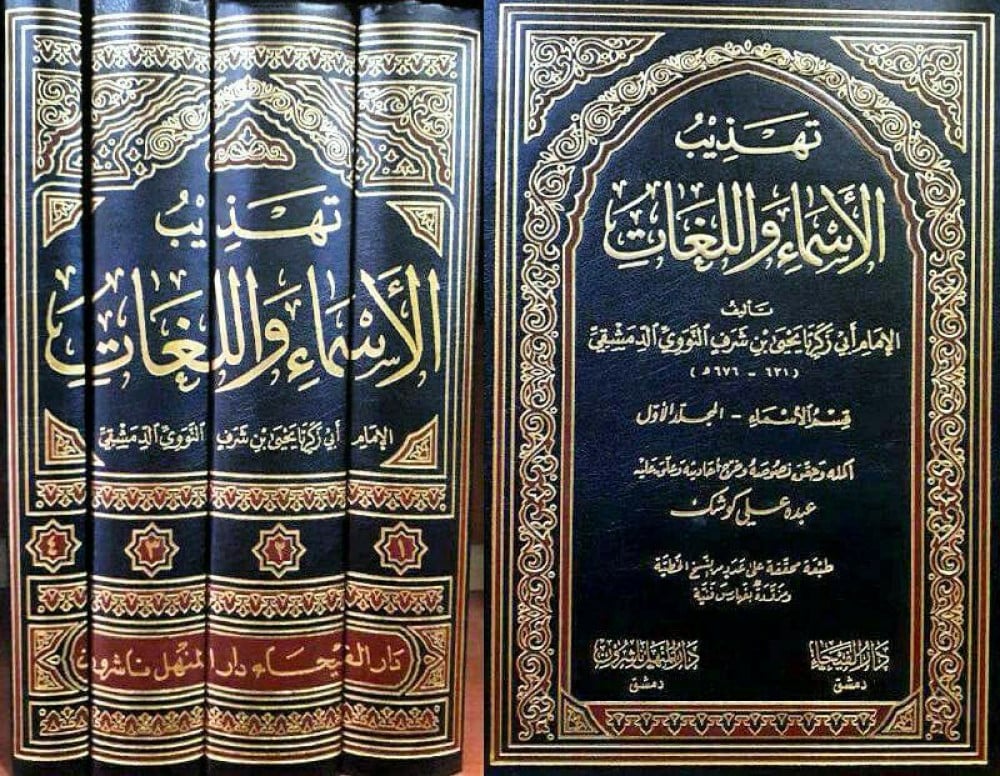 تهذيب
الأسماء واللغات
الإمام أبي زكريا يحيى بن شرف النووي الدمشقي
٤ ٣ ٢ ١
دار الفيحاء دار المنهل ناشرون
تَهْذِيْبُ
الأَسْمَاءِ وَاللُّغَاتِ
تأليف
الإمام أبي زكريا يحيى بن شرف النووي الدمشقي
(٦٣١ - ٦٧٦ هـ)
قسم الأسماء - المجلد الأول
أكمله وحقق نصوصه وخرج أحاديثه وعلق عليه
عبده علي كوشك
طبعة محققة على عدد من النسخ الخطية
ومزودة بفهارس فنية
دار الفيحاء
دمشق
دار المنهل ناشرون
دمشق